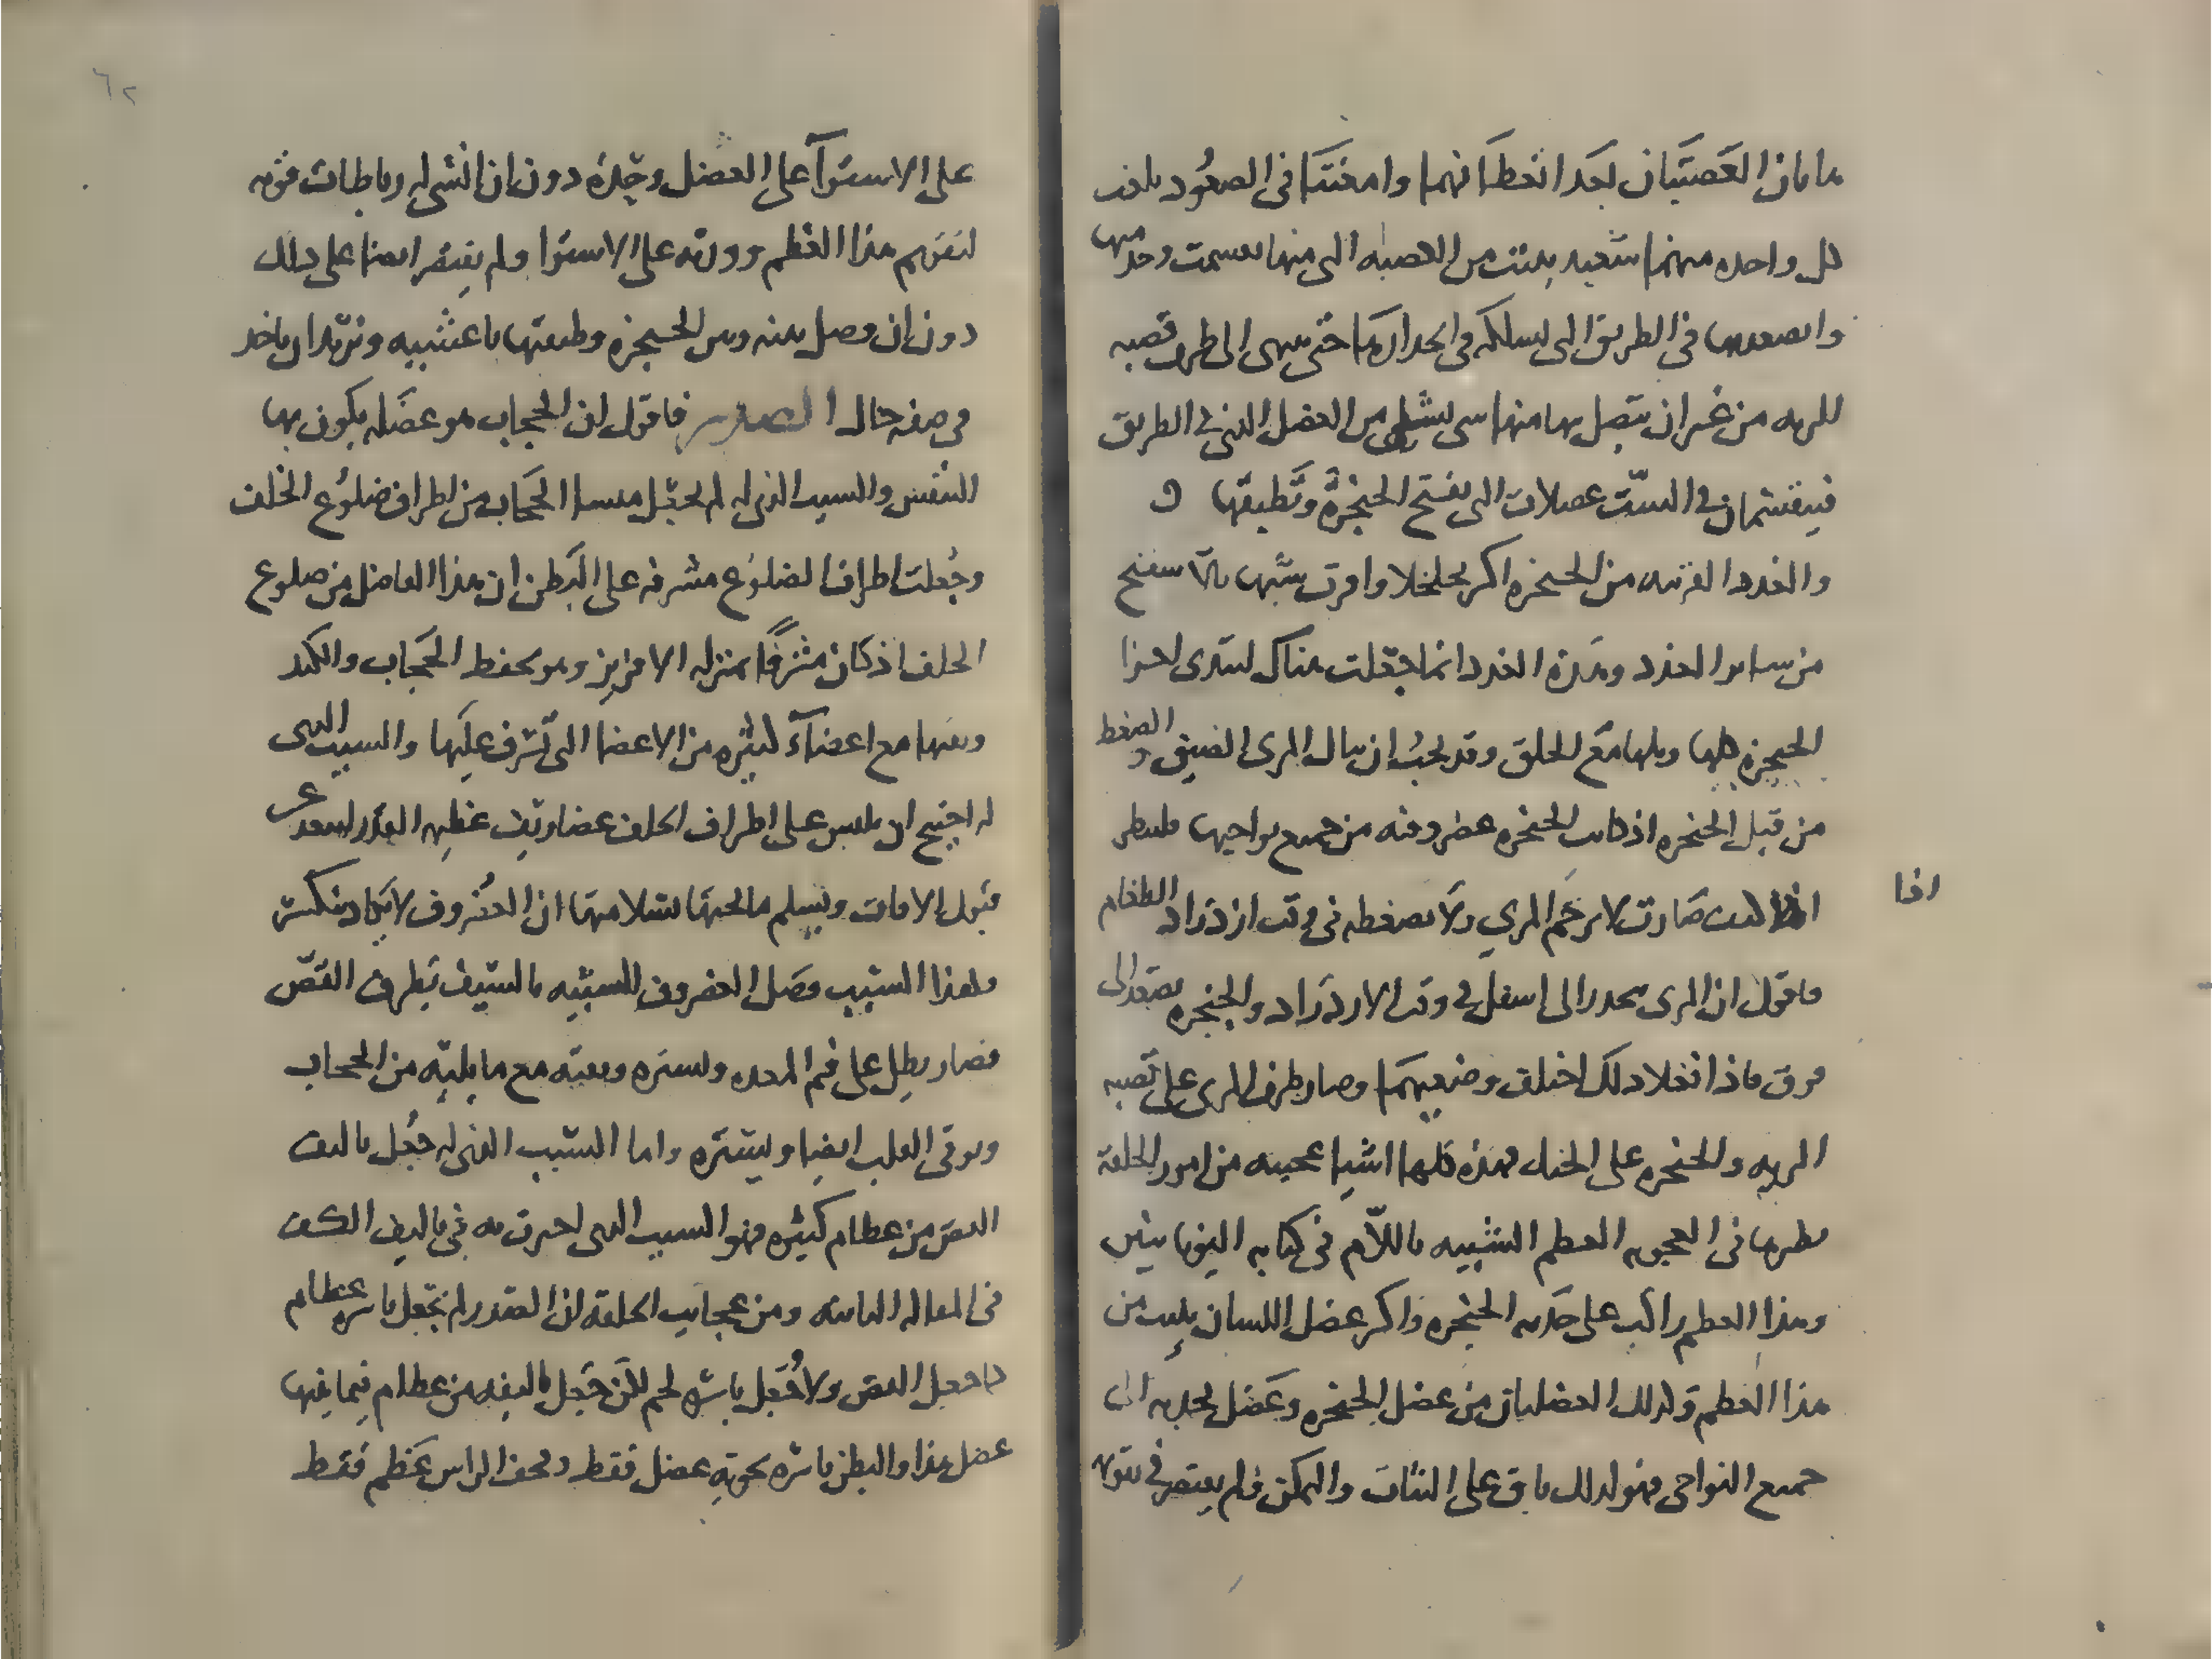 هاتان العصبتان بعد انعطافهما وامعنتا في الصعود تلقف
كل واحده منهما شعبه بعثت من العصبه التي منها تعسمت وحدها
والصعود في الطريق التي تسلكه في انحدارها حتى ينتهى الى طرف قصبه
الريه من غير ان يتصل بها منها سى لشى من العضل الذي في الطريق
فيقتسمان في الست عضلات التى تفتح الحنجرة وتطبقها
والغدد القريبه من الحنجره اكثر تخلخلا واقرب شبها بالاسفنج
من ساير الغدد وهذه الغدد انما جعلت هناك لتندى اجزا
الحنجرة كلها وتبلها مع الحلق وقد يجب ان ينال المرى الضيق والضغط
من قبل الحنجره اذ كانت الحنجره غضروفيه من جميع نواحيها فلننظر
اذا
كيف صارت لا تزحم المري ولا تضغطه في وقت ازدراد الطعام
فاقول ان المرى ينحدر الى اسفل في وقت الازدراد والحنجره تصعد الى
فوق فاذا فعلا ذلك اختلف وضعيهما وصار طرف المرى على قصبه
الريه والحنجره على الحنك فهذه كلها اشيا عجيبه من امور الخلقة
نظيرها في العجوبه العظم الشبيه باللام في كتابه اليونانيين
وهذا العظم راكب على حدبه الحنجره واكثر عضل اللسان ينبت من
هذا العظم وكذلك العضلتان من عضل الحنجره وعضل يجذبه الى
جميع النواحي فهو لذلك باق على الثبات والتمكن فلم يقتصر في تقويه
٦٢
على الاستوآ على العضل وحده دون ان انشى له رباطات قويه
لتقويم هذا العظم ووزنه على الاستوا ولم يقتصر ايضا على ذلك
دون ان وصل بينه وبين الحنجره وطبقتها باغشيه ونريد ان ناخذ
في صفه حال الصدر فاقول ان الحجاب هو عضله يكون بها
التنفس والسبب الذي له لم يجعل منشا الحجاب من اطراف ضلوع الخلف
وجعلت اطراف الضلوع مشرفه على البطن ان هذا الفاضل من ضلوع
الخلف اذ كان مشرفا بمنزله الافريز وهو يحفظ الحجاب والكبد
ويقيها مع اعضآء كثيره من الاعضا التي تشرف عليها والسبب الذي
له احتيج ان يلبس على اطراف الخلف غضاريف عظيمه القدر لتبعد عن
قبول الافات ويسلم ما تحتها بسلامتها ان الغضروف لا يكاد ينكسر
ولهذا السبب وصل الغضروف الشبيه بالسيف بطرف القص
فصار يطل على فم المعده ويستره ويقيه مع ما يليه من الحجاب
ويوقى القلب ايضا ويستره واما السبب الذي له جعل تاليف
القص من عظام كثيره فهو السبب الذي اخبرت به في تاليف الكف
في المقاله الثانيه ومن عجايب الخلقه ان الصدر لم يجعل باسره عظام
كما جعل القص ولا جعل باسره لحم لكن جعل تاليفه من عظام فيما بينها
عضل هذا والبطن باسره يحويه عضل فقط وقحف الراس عظم فقط